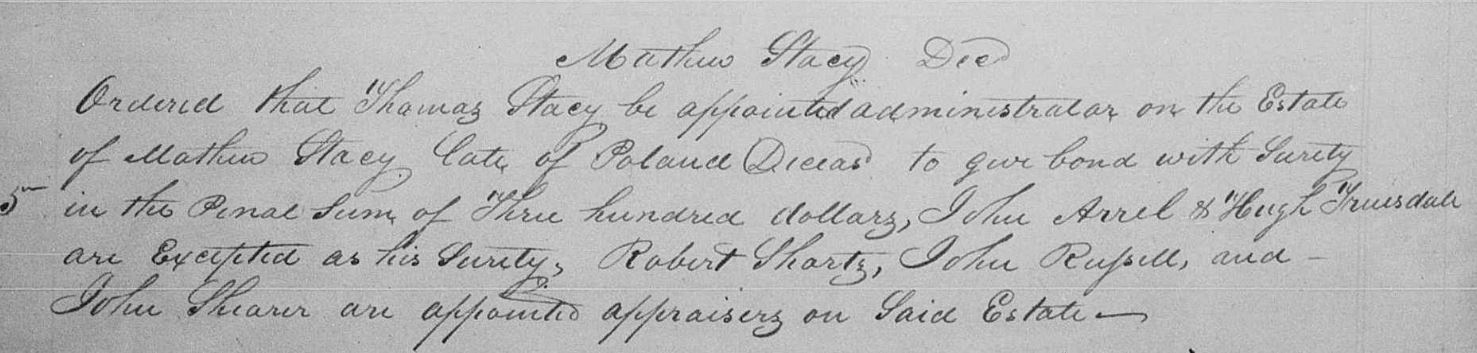 Mathew Stacy Decd
Ordered that Thomas Stacy be appointed administrator on the Estate
of Mathew Stacy late of Poland Deceasd to give bond with Surety
5 in the Penal Sum of Three hundred dollars, John Arrel & Hugh Truesdale
are Excepted as his Surety, Robert Shortz, John Russell, and –
John Shearer are appointed appraisers on Said Estate —